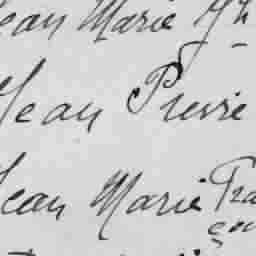 Jean Marie Yh
Jean Pierre
Jean Marie Fra